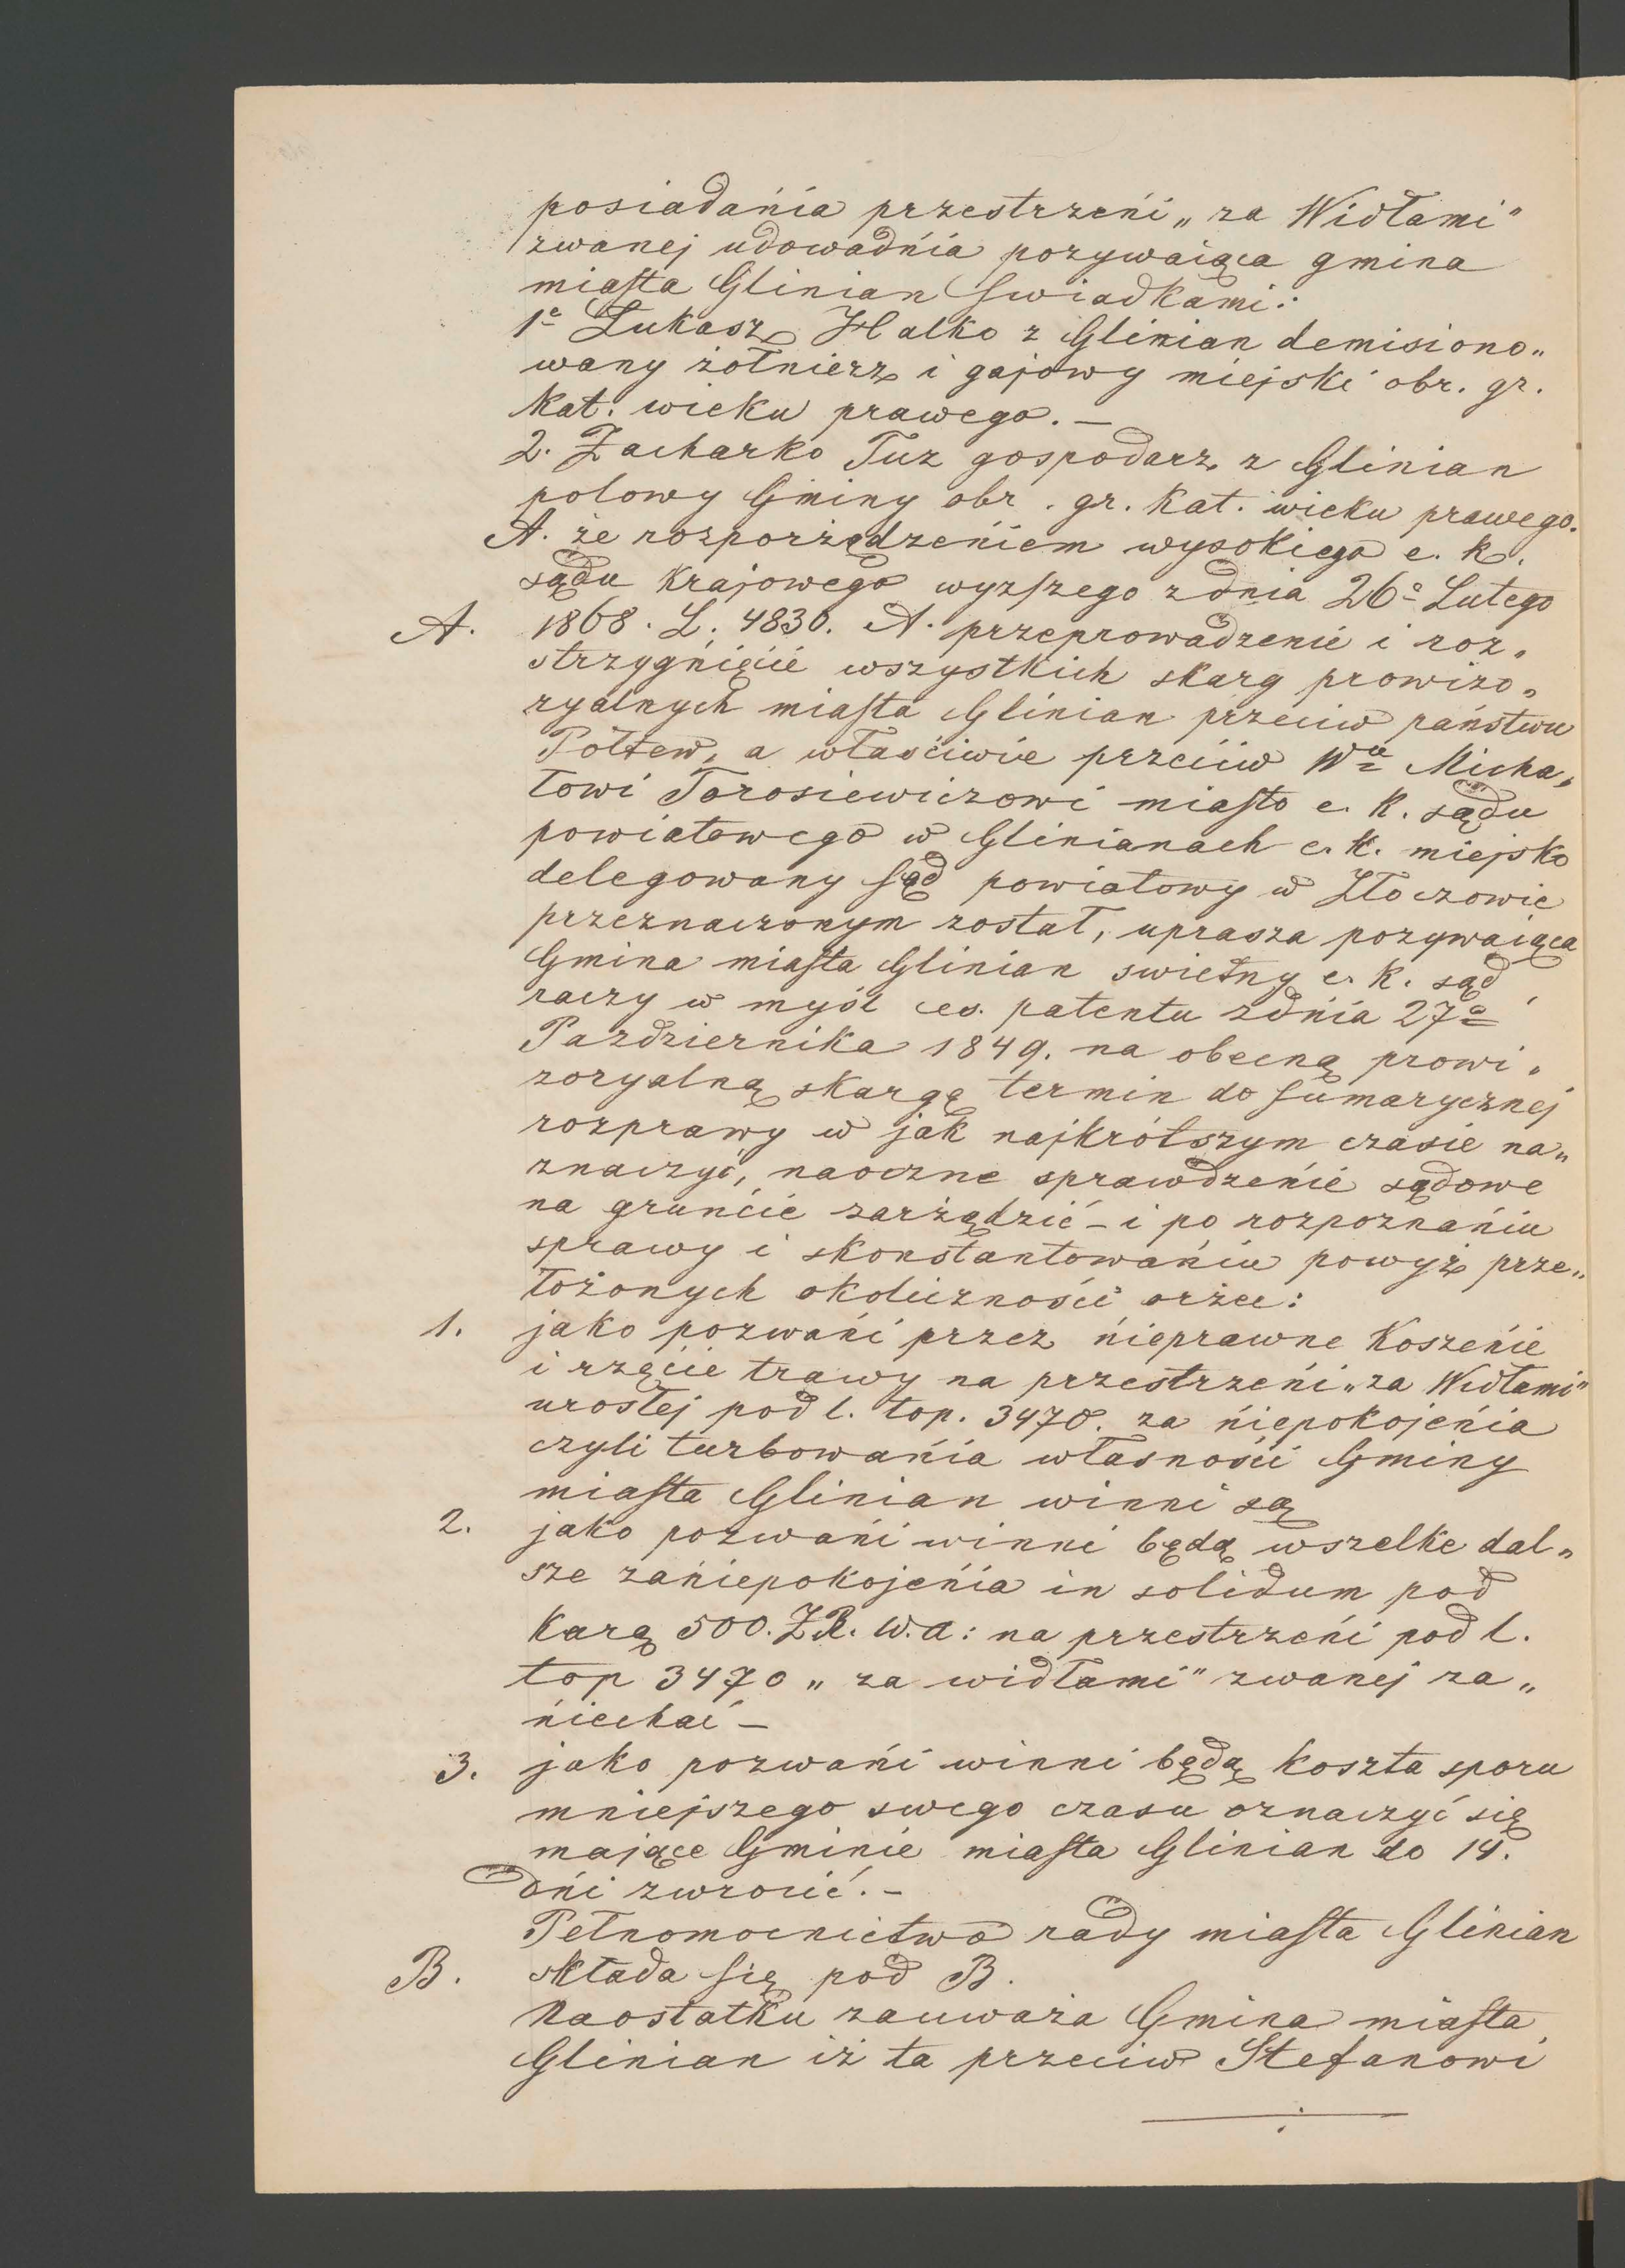 posiadańia przestrzeńi „za Widłami"
zwanej udowadńia pozywaiąca gmina
miasta Glinian swiadkami:
1e Łukasz Halko z Glinian demisiono„
wany żołnierz i gajowy miejski obr. gr.
kat. wieku prawego. —
2. Zacharko Tuz gospodarz z Glinian
polowy Gminy obr. gr. kat. wieku prawego.
A. że rozporządzeńiem wysokiego c. k.
sądu krajowego wyzszego zdnia 26o Lutego
A. 1868. L. 4830. A. przeprowadzenie i roz„
strzygńięcie wszystkich skarg prowizo„
ryalnych miasta Glinian przeciw państwu
Połtew, a własciwie przeciw Wu Micha„
łowi Torosiewiczowi miasto c. k. sądu
powiatowego w Glinianach c. k. miejsko
delegowany sąd powiatowy w Złoczowie
przeznaczonym został, uprasza pozywaiąca
Gmina miasta Glinian swietny c. k. sąd
raczy w myśl ces. patentu zdnia 27o
Pazdziernika 1849. na obecną prowi„
zoryalną skargę termin do sumarycznej
rozprawy w jak najkrótszym czasie na„
znaczyć, naoczne sprawdzeńie sądowe
na gruńcie zarządzić – i po rozpoznańiu
sprawy i skonstantowańiu powyż prze„
łożonych okoliczności orzec:
1. jako pozwańi przez ńieprawne koszeńie
i rzęcie trawy na przestrzeńi „za Widłami"
urosłej pod l. top. 3470. za ńiepokojeńia
czyli turbowańia własności Gminy
miasta Glinian winni są
2. jako pozwańi winni będą wszelke dal„
sze zańiepokojeńia in solidum pod
karą 500. ZR. W. a: na przestrzeńi pod l.
top 3470 „za widłami" zwanej za„
ńiechać –
3. jako pozwańi winni będą koszta sporu
mniejszego swego czasu oznaczyć się
mające Gminie miasta Glinian do 14.
dńi zwrocić. –
Pełnomocnictwo rady miasta Glinian
B. składa się pod B.
Naostatku zauważa Gmina miasta
Glinian iż ta przeciw Stefanowi